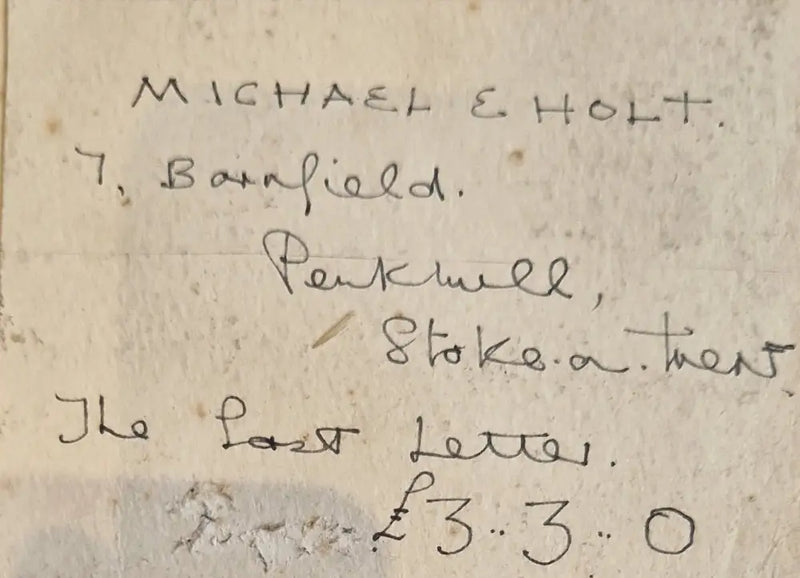 MICHAEL E HOLT.
7, Barnfield.
Penkhull,
Stoke.on.Trent.
The Last Letter.
£3..3..0